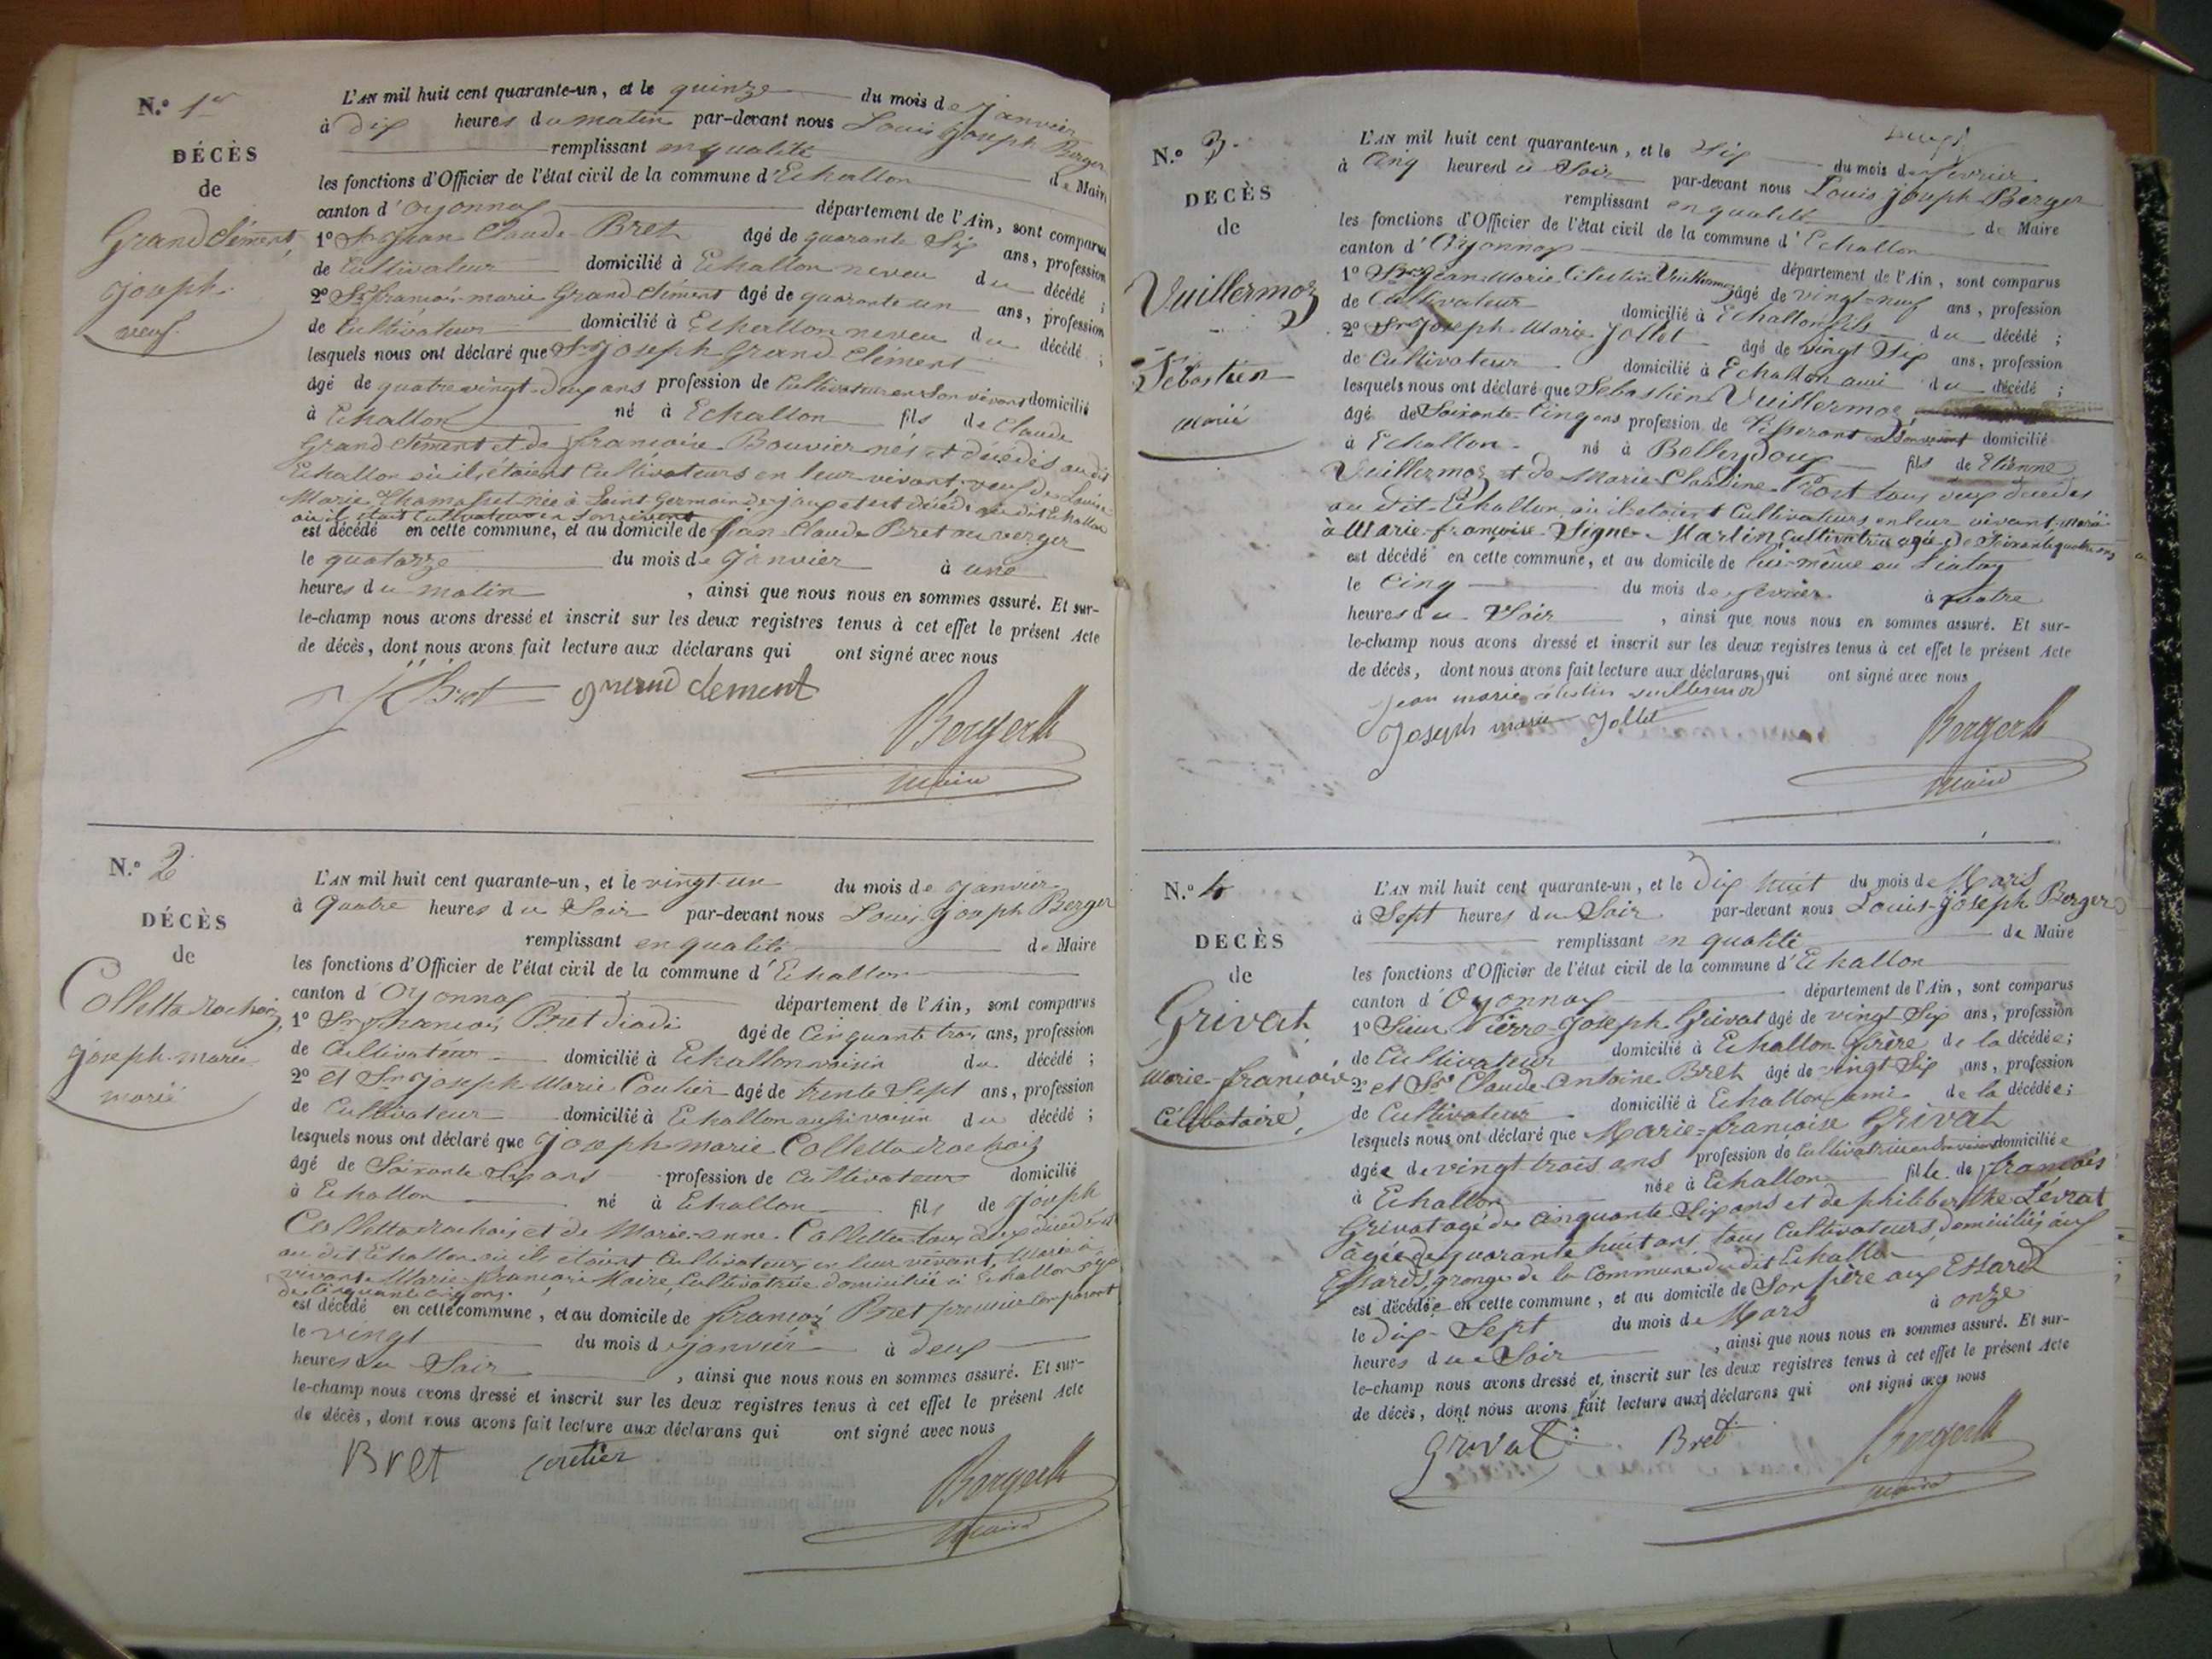 N.º 1er
DÉCÈS
de
Grand clément,
joseph.
veuf.
L'AN mil huit cent quarante-un, et le quinze du mois de janvier
à dix heures du matin par-devant nous Louis joseph Berger
remplissant en qualité de Maire
les fonctions d'Officier de l'état civil de la commune d'Echallon
canton d'Oyonnax département de l'Ain, sont comparus
1º Sr jean Claude Bret âgé de quarante Six ans, profession
de Cultivateur domicilié à Echallon neveu du décédé ;
2º Sr françois-marie Grand clément âgé de quarante un ans, profession
de Cultivateur domicilié à Echallon neveu du décédé ;
lesquels nous ont déclaré que Sr joseph Grand Clement
âgé de quatrevingt-deux ans profession de Cultivateur en Son vivant domicilié
à Echallon né à Echallon fils de Claude
Grand clément et de françoise Bouvier nés et décédés au dit
Echallon où ils étaient Cultivateurs en leur vivant, veuf de Louise
Marie née à Saint Germain de joux et est décédé au dit Echallon
où il était Cultivateur en son vivant
est décédé en cette commune, et au domicile de jean Claude Bret au verger
le quatorze du mois de janvier à une
heures du matin , ainsi que nous nous en sommes assuré. Et sur-
le-champ nous avons dressé et inscrit sur les deux registres tenus à cet effet le présent Acte
de décès, dont nous avons fait lecture aux déclarans qui ont signé avec nous
Bret grand clement
Berger
maire
N.º 2
DÉCÈS
de
Colletta rochaix,
joseph-marie
marié
L'AN mil huit cent quarante-un, et le vingt-un du mois de janvier
à Quatre heures du Soir par-devant nous Louis joseph Berger
remplissant en qualité de Maire
les fonctions d'Officier de l'état civil de la commune d'Echallon
canton d'Oyonnax département de l'Ain, sont comparus
1º Sr françois Bret diadi âgé de Cinquante trois ans, profession
de Cultivateur domicilié à Echallon voisin du décédé ;
2º et Sr joseph-Marie Coutier âgé de trente Sept ans, profession
de Cultivateur domicilié à Echallon aussi voisin du décédé ;
lesquels nous ont déclaré que joseph marie Colletta rochaix
âgé de Soixante Six ans profession de Cultivateur domicilié
à Echallon né à Echallon fils de joseph
Colletta rochaix et de Marie-anne Colletta tous deux décédés
au dit Echallon où ils étaient Cultivateurs en leur vivant, Marié à
vivante Marie-françoise Maire, Cultivatrice domiciliée à Echallon âgée
de Cinquante cinq ans.
est décédé en cette commune, et au domicile de françois Bret premier Comparant
le vingt du mois de janvier à deux
heures du Soir , ainsi que nous nous en sommes assuré. Et sur-
le-champ nous avons dressé et inscrit sur les deux registres tenus à cet effet le présent Acte
de décès, dont nous avons fait lecture aux déclarans qui ont signé avec nous
Bret coutier
Berger
maire
N.º 3.
DECÈS
de
Vuillermoz
Sébastien
marié
L'AN mil huit cent quarante-un, et le Six du mois de fevrier
à Cinq heures du Soir par-devant nous Louis joseph Berger
remplissant en qualité de Maire
les fonctions d'Officier de l'état civil de la commune d'Echallon
canton d'Oyonnax département de l'Ain, sont comparus
1º Sr jean-Marie Célestin Vuillermoz âgé de vingt-neuf ans, profession
de Cultivateur domicilié à Echallon fils du décédé ;
2º Sr joseph-Marie Jollet âgé de vingt Six ans, profession
de Cultivateur domicilié à Echallon ami du décédé ;
lesquels nous ont déclaré que Sébastien Vuillermoz
âgé de Soixante-Cinq ans profession de tisserant en Son vivant domicilié
à Echallon né à Belleydoux fils de Etienne
Vuillermoz et de Marie-Claudine tous deux décédés
au dit-Echallon où ils étoient Cultivateurs en leur vivant, marié
à Marie-françoise Martin Cultivatrice agée de Soixante quatre ans
est décédé en cette commune, et au domicile de lui-même au
le Cinq du mois de fevrier à quatre
heures du Soir , ainsi que nous nous en sommes assuré. Et sur-
le-champ nous avons dressé et inscrit sur les deux registres tenus à cet effet le présent Acte
de décès, dont nous avons fait lecture aux déclarans qui ont signé avec nous
jean marie célestin vuillermoz
Joseph marie Jollet
Berger
maire
N.º 4
DECÈS
de
Grivat,
Marie-françoise,
Célibataire,
L'AN mil huit cent quarante-un, et le Dix huit du mois de Mars
à Sept heures du Soir par-devant nous Louis-joseph Berger
remplissant en qualité de Maire
les fonctions d'Officier de l'état civil de la commune d'Echallon
canton d'Oyonnax département de l'Ain, sont comparus
1º Sieur Pierre-joseph Grivat âgé de vingt Six ans, profession
de Cultivateur domicilié à Echallon frère de la décédée ;
2º et Sr Claude-antoine Bret âgé de vingt-Six ans, profession
de Cultivateur domicilié à Echallon ami de la décédée ;
lesquels nous ont déclaré que Marie-françoise Grivat
âgée de vingt trois ans profession de Cultivatrice en Son vivant domiciliée
à Echallon née à Echallon fille de françois
Grivat agé de Cinquante Six ans et de philiberthe Levrat
agée de quarante huit ans, tous Cultivateurs, domiciliés aux
Essards, grange de la Commune du dit Echallon
est décédée en cette commune, et au domicile de Son père aux Essards
le Dix-Sept du mois de Mars à onze
heures du Soir , ainsi que nous nous en sommes assuré. Et sur-
le-champ nous avons dressé et inscrit sur les deux registres tenus à cet effet le présent Acte
de décès, dont nous avons fait lecture aux déclarans qui ont signé avec nous
Grivat Bret
Berger
maire